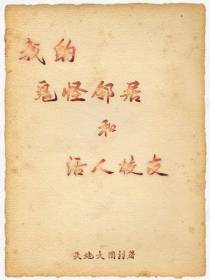 我的
鬼怪邻居
和
活人校友
天地大 著